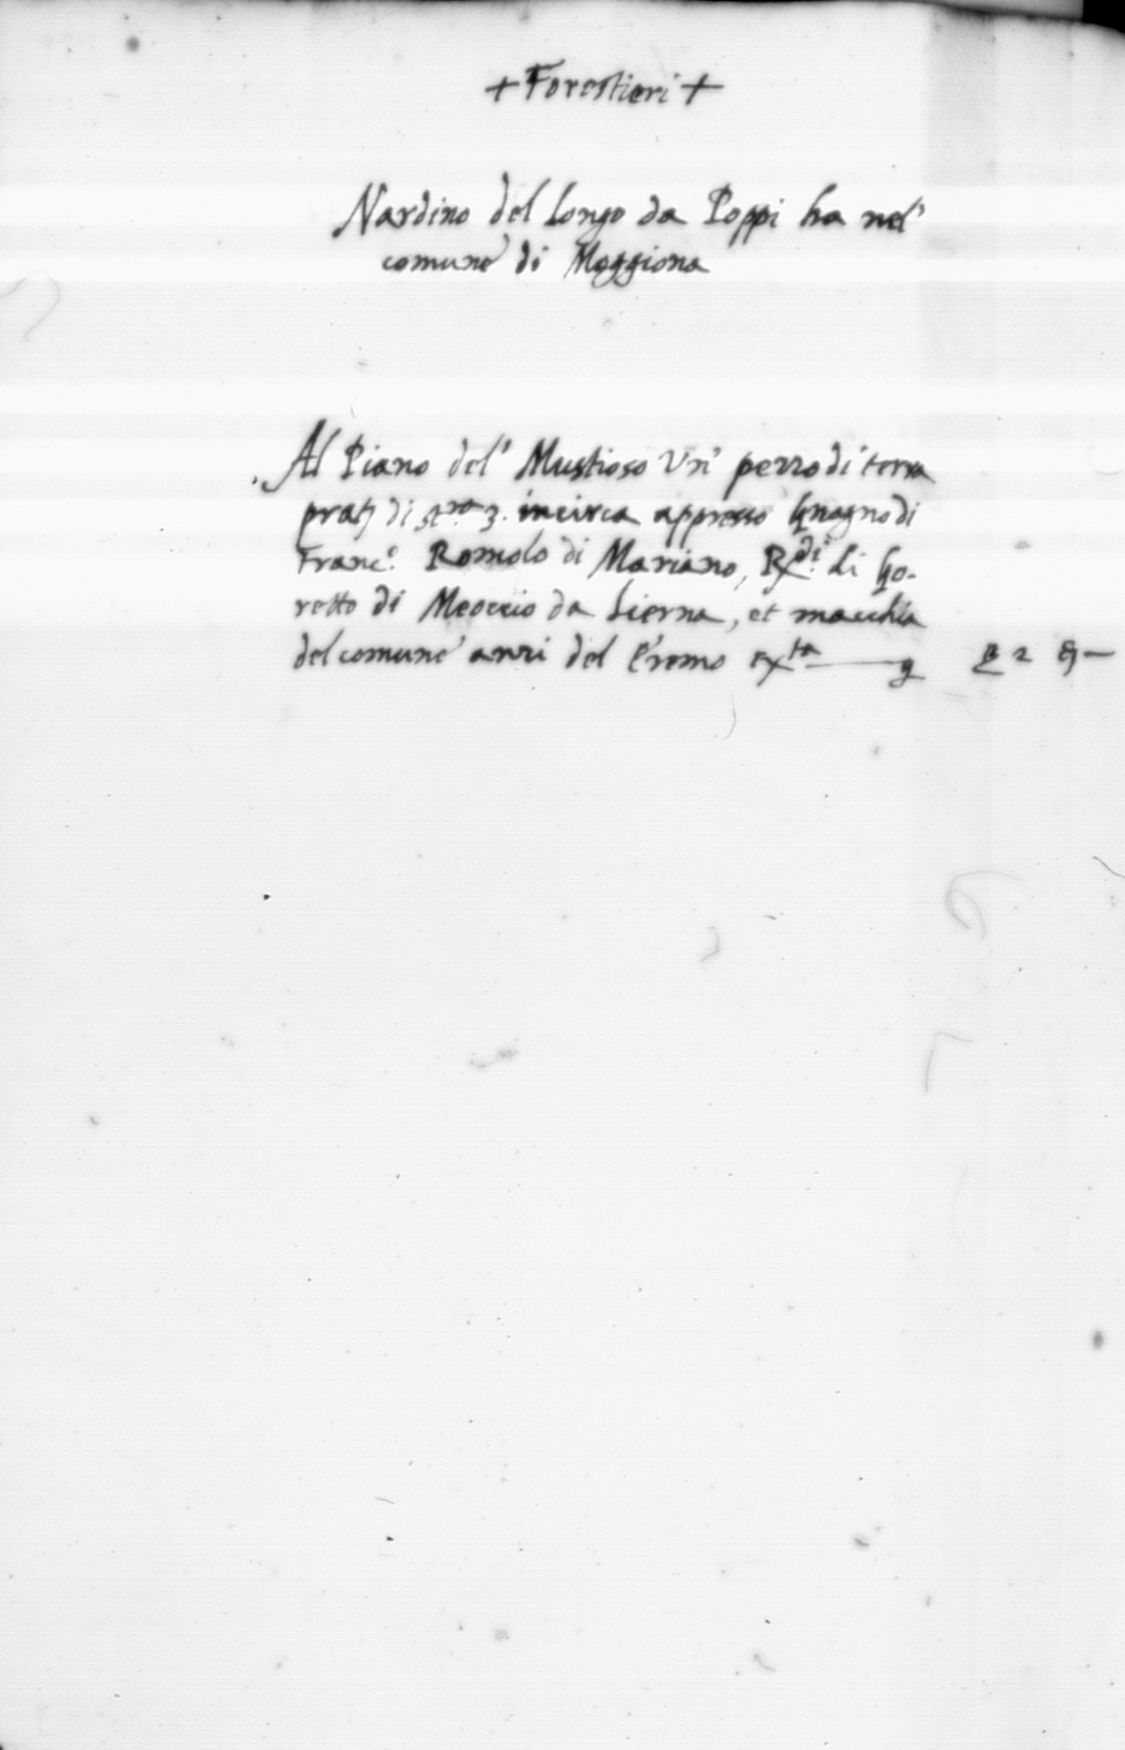 + Forestieri +
Nardino del Longo da Poppi ha nel'
comune di Moggiona
Al Piano del' Mustioso Un' pezzo di terra
di 3. incirca appresso
Franc.º Romolo di Mariano, di
retto di Meoccio da Lierna, et macchia
del comune anzi del Eremo
2